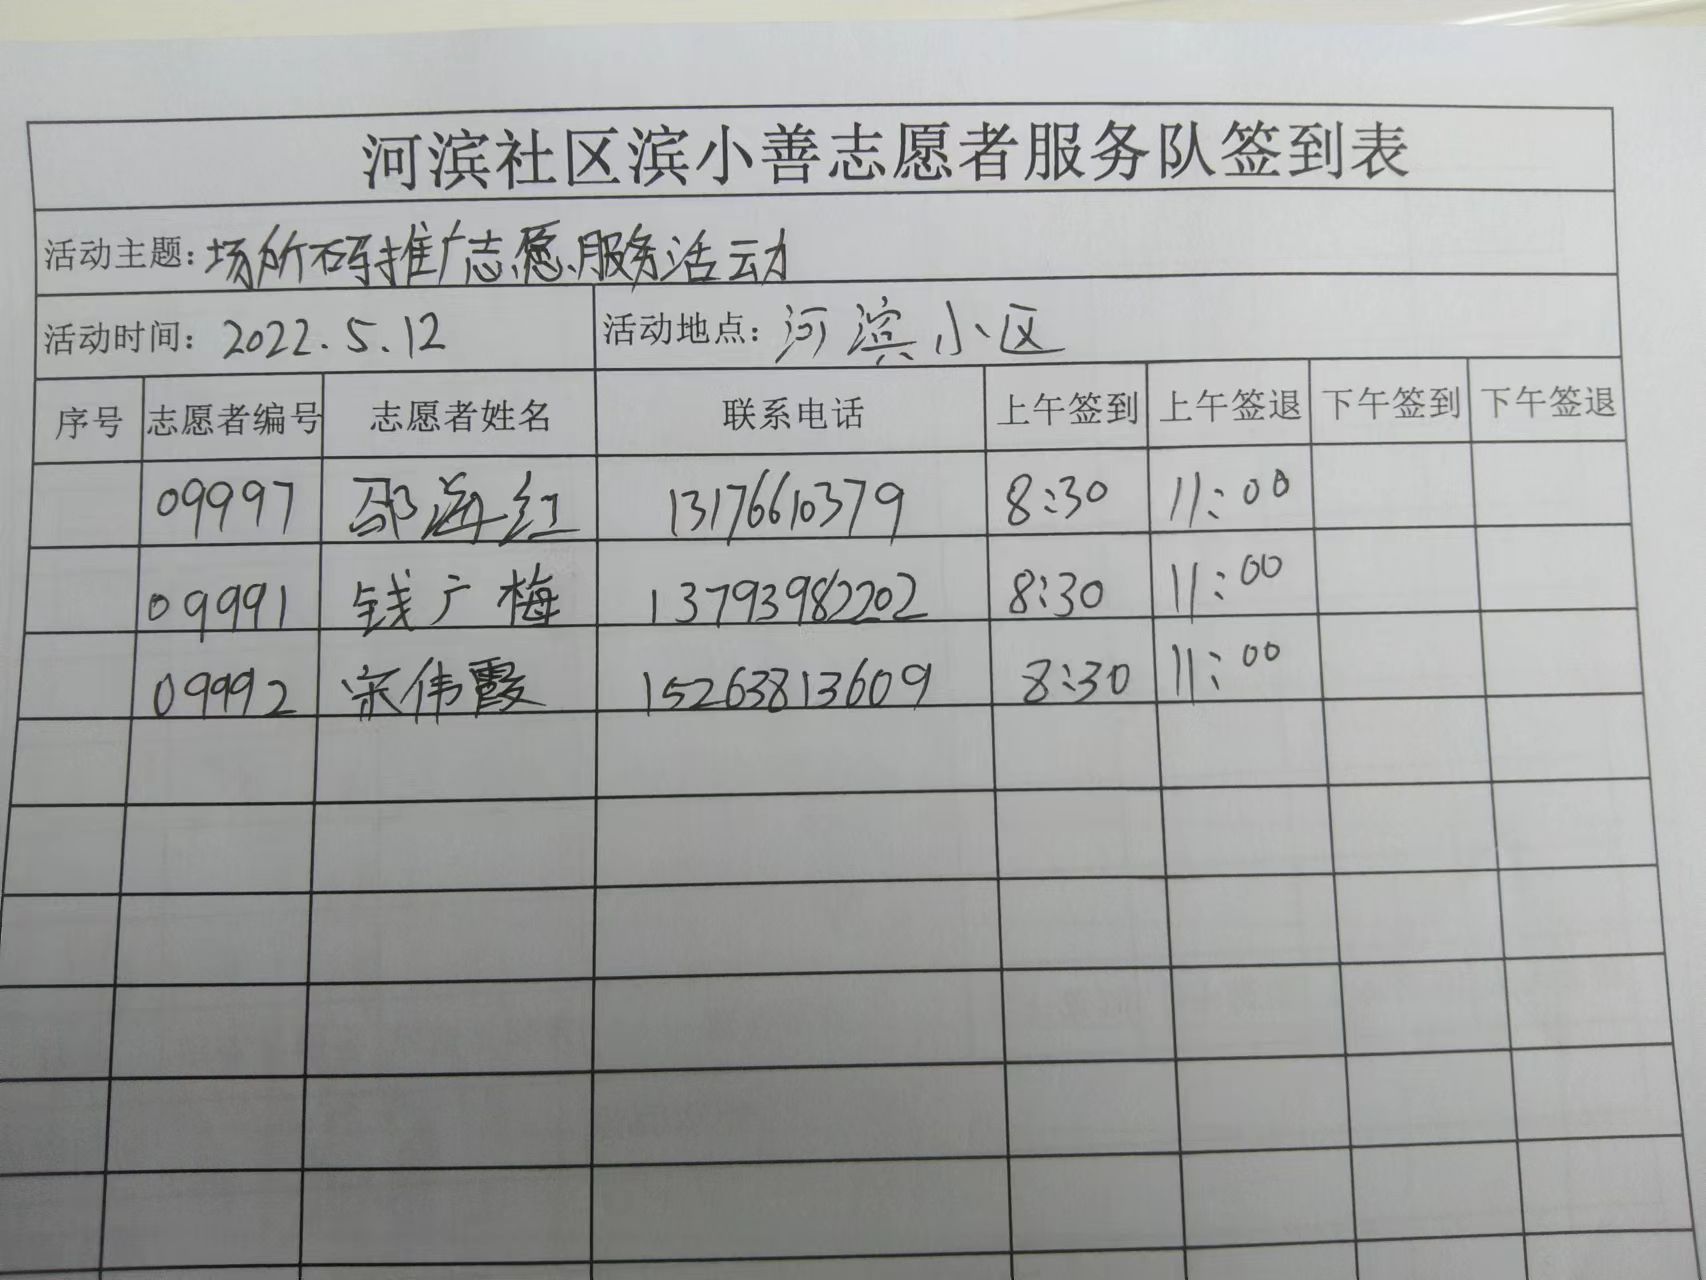 河滨社区滨小善志愿者服务队签到表
活动主题：场所码推广志愿服务活动
活动时间：2022.5.12 活动地点：河滨小区
序号 志愿者编号 志愿者姓名 联系电话 上午签到 上午签退 下午签到 下午签退
09997 邵海红 13176610379 8:30 11:00
09991 钱广梅 13793982202 8:30 11:00
09992 宋伟霞 15263813609 8:30 11:00